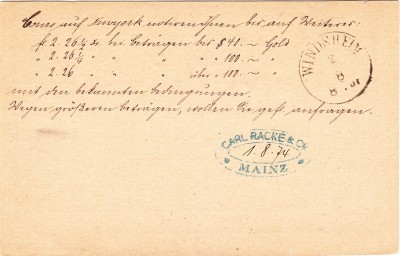 Cours auf Newyork notiren Ihnen bis auf Weiteres:
fl. 2. 26 ¾ Xr bei Beträgen bis $ 40.- Gold
" 2. 26 ¼ " " " " 100.- "
" 2. 26 " " " über " 100.- "
mit den bekannten Bedingungen.
Wegen größeren Beträgen, wollen Sie gefl. anfragen.
WINDSHEIM
2
8
CARL RACKÉ & Cie
1. 8. 74
MAINZ